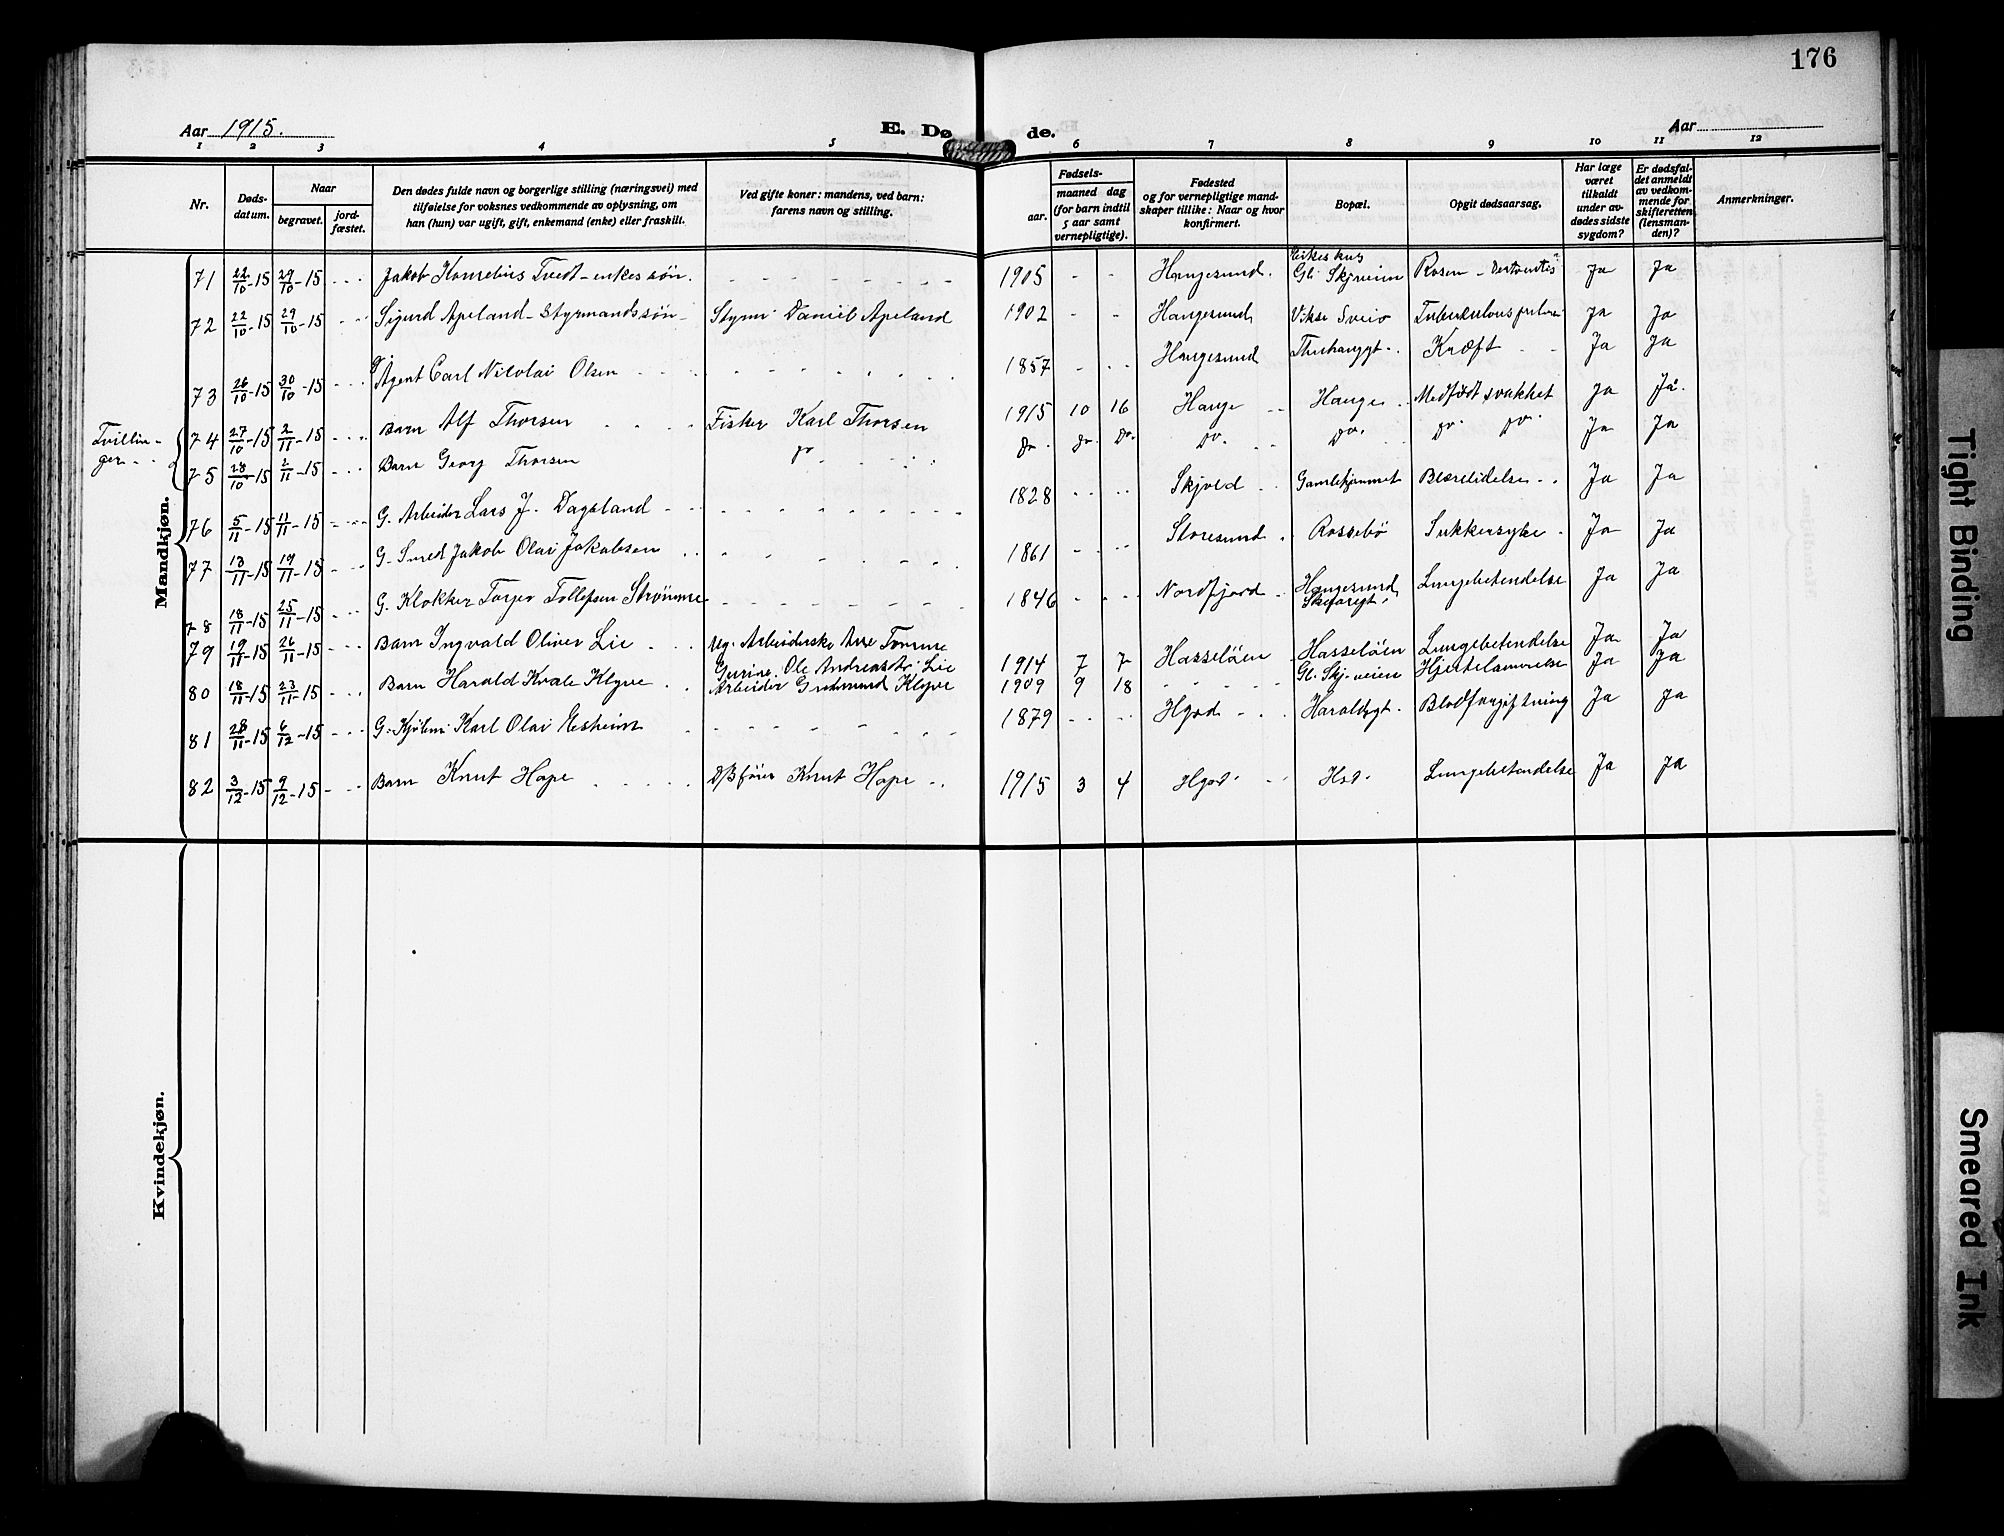 176
Aar 1915.
E. Dø de.
Aar
1 2 3 4 5 6 7 8 9 10 11 12
Nr.
Døds-
datum.
Naar
begravet.
jord-
fæstet.
Den dødes fulde navn og borgerlige stilling (næringsvei) med
tilføielse for voksnes vedkommende av oplysning, om
han (hun) var ugift, gift, enkemand (enke) eller fraskilt.
Ved gifte koner: mandens, ved barn:
farens navn og stilling.
Fødsels-
aar.
maaned dag
(for barn indtil
5 aar samt
vernepligtige).
Fødested
og for vernepligtige mand-
skaper tillike: Naar og hvor
konfirmert.
Bopæl.
Opgit dødsaarsag.
Har læge
været
tilkaldt
under av-
dødes sidste
sygdom?
Er dødsfal-
det anmeldt
av vedkom-
mende for
skifteretten
(lensman-
den)?
Anmerkninger.
Mandkjøn.
71 22/10-15 29/10-15 Jakob Kornelius Tvedt - enkes søn. 1905 Haugesund. Gl. Skjveien Rosen Ja Ja
72 22/10-15 29/10-15 Sigurd Apeland - Styrmandssøn - Styrm. Daniel Apeland 1902 Haugesund Vikse Sveio Ja Ja
73 26/10-15 30/10-15 Agent Carl Nicolai Olsen 1857 Haugesund Kræft Ja Ja
Tvillin-
ger
74 27/10-15 2/11-15 Barn Alf Thorsen Fisker Karl Thorsen 1915 10 16 Hauge Hauge Medfødt svakhet Ja Ja.
75 28/10-15 2/11-15 Barn Georg Thorsen do do. do. do. do. do. do. do. Ja Ja
76 5/11-15 11/11-15 G. Arbeider Lars J. Dagsland 1828 Skjold Gamlehjemmet Blærelidelse Ja Ja
77 13/11-15 19/11-15 G. Smed Jakob Olai Jakobsen 1861 Storesund Rossebø Sukkersyke Ja Ja
78 18/11-15 25/11-15 G. Klokker Torger Tollefsen Strømme 1846 Nordfjord Haugesund Lungebetendelse Ja Ja
79 19/11-15 26/11-15 Barn Ingvald Oliver Lie Ug. Arbeiderske
Gurine Ole Andreasdtr. Lie 1914 7 7 Hasseløen Hasseløen Lungebetendelse Ja Ja
80 18/11-15 23/11-15 Barn Harald Kvale Klyve Arbeider Gudmund Klyve 1909 9 18 Gl. Skj-veien Hjertelammelse Ja Ja
81 28/11-15 6/12-15 G. Karl Olai Eesheim 1879 Hgsd Haraldsgt. Blodforgiftning Ja Ja
82 3/12-15 9/12-15 Barn Knut Hope Knut Hope 1915 3 4 Hgsd. Lungebetendelse Ja Ja
Kvindekjøn.
Tight Binding
Smeared Ink